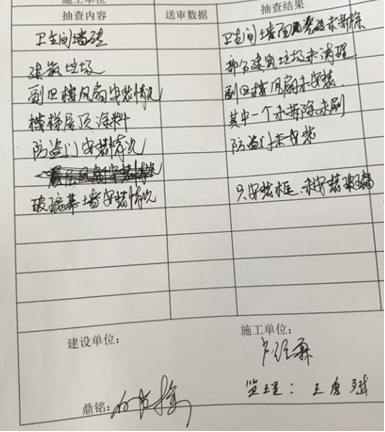 施工单位：
抽查内容 送审数据 抽查结果
卫生间墙砖 卫生间墙面瓷砖未拆除
建筑垃圾 部分建筑垃圾未清理
副卫楼风扇安装情况 副卫楼风扇未安装
楼梯层顶涂料 其中一个未拆除未刷
防盗门安装情况 防盗门未安装
玻璃幕墙安装情况 只安装框，未安装玻璃
建设单位： 施工单位：
鼎铭：
监理：王